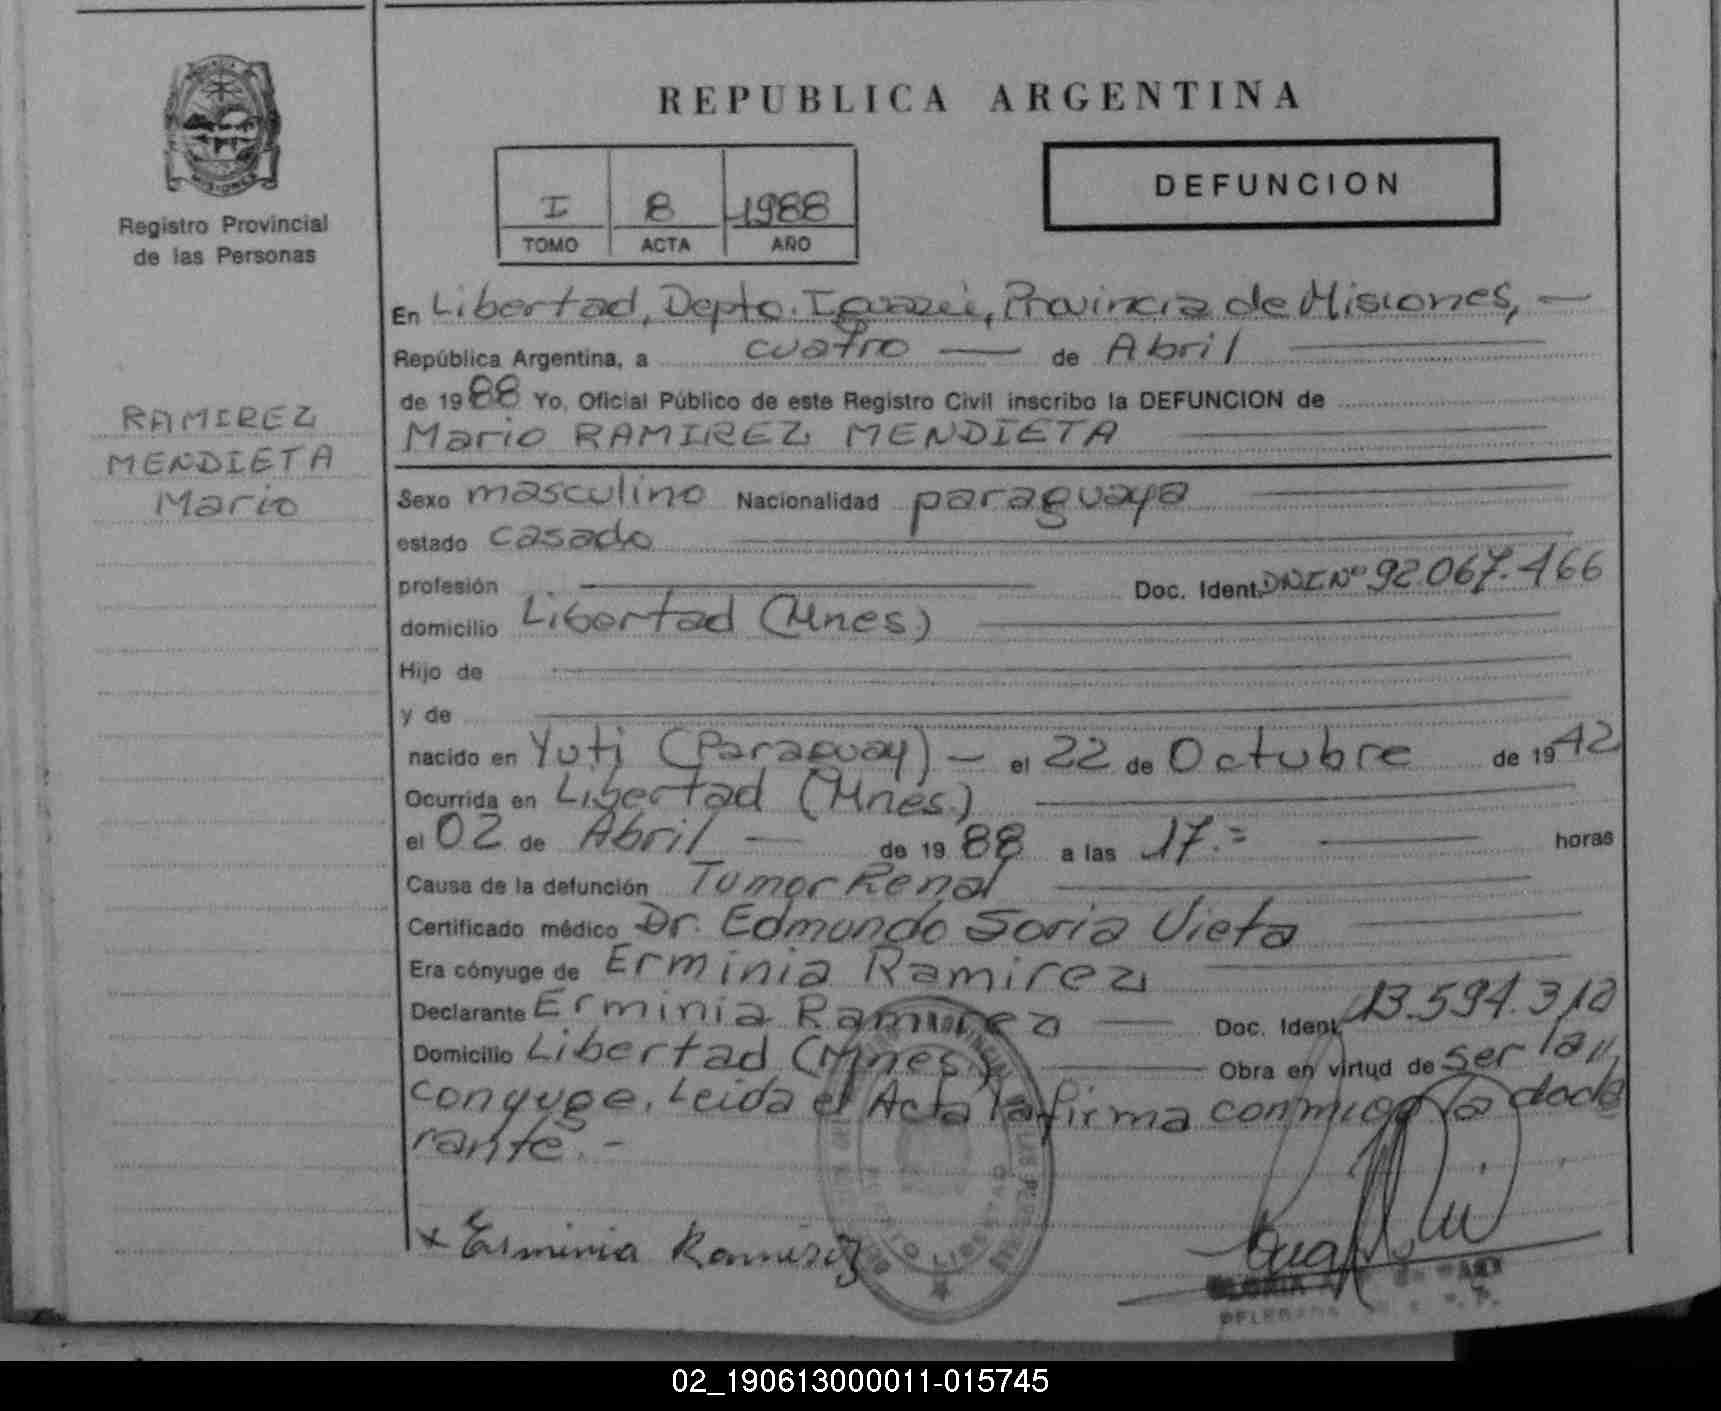 REPUBLICA ARGENTINA
MISIONES
Registro Provincial
de las Personas
I 8 1988
TOMO ACTA AÑO
DEFUNCION
RAMIREZ
MENDIETA
Mario
En Libertad, Depto. Iguazú, Provincia de Misiones, —
República Argentina, a cuatro — de Abril
de 1988 Yo, Oficial Público de este Registro Civil inscribo la DEFUNCION de
Mario RAMIREZ MENDIETA
Sexo masculino Nacionalidad paraguaya
estado casado
profesión Doc. Ident. DNI Nº 92.067.466
domicilio Libertad (Mnes)
Hijo de
y de
nacido en Yuti (Paraguay) — el 22 de Octubre de 1942
Ocurrida en Libertad (Mnes.)
el 02 de Abril — de 1988 a las 17.= horas
Causa de la defunción Tumor Renal
Certificado médico Dr. Edmundo Soria Vieta
Era cónyuge de Erminia Ramirez
Declarante Erminia Ramirez — Doc. Ident. 13.594.312
Domicilio Libertad (Mnes) Obra en virtud de ser la
conyuge. Leida el Acta la firma conmigo la decla
rante. -
x Erminia Ramirez
02_190613000011-015745